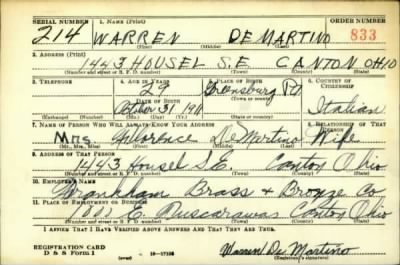 SERIAL NUMBER 1. NAME (Print) ORDER NUMBER
214 WARREN DE MARTINO 833
(First) (Middle) (Last)
2. ADDRESS (Print)
1443 HOUSEL S.E. CANTON OHIO
(Number and street or R. F. D. number) (Town) (County) (State)
3. TELEPHONE 4. AGE IN YEARS 5. PLACE OF BIRTH 6. COUNTRY OF CITIZENSHIP
29 Greensburg Pa
DATE OF BIRTH (Town or county)
October 31 1911 Italian
(Mo.) (Day) (Yr.) (State or country)
7. NAME OF PERSON WHO WILL ALWAYS KNOW YOUR ADDRESS 8. RELATIONSHIP OF THAT PERSON
Mrs Florence De Martino Wife
(Mr., Mrs., Miss) (First) (Middle) (Last)
9. ADDRESS OF THAT PERSON
1443 Housel S.E. Canton Ohio
(Number and street or R. F. D. number) (Town) (County) (State)
10. EMPLOYER'S NAME
Brass & Bronze Co
11. PLACE OF EMPLOYMENT OR BUSINESS
E. Tuscarawas Canton Ohio
(Number and street or R. F. D. number) (Town) (County) (State)
I AFFIRM THAT I HAVE VERIFIED ABOVE ANSWERS AND THAT THEY ARE TRUE.
REGISTRATION CARD
D S S Form 1 Warren De Martino
(Registrant's signature)